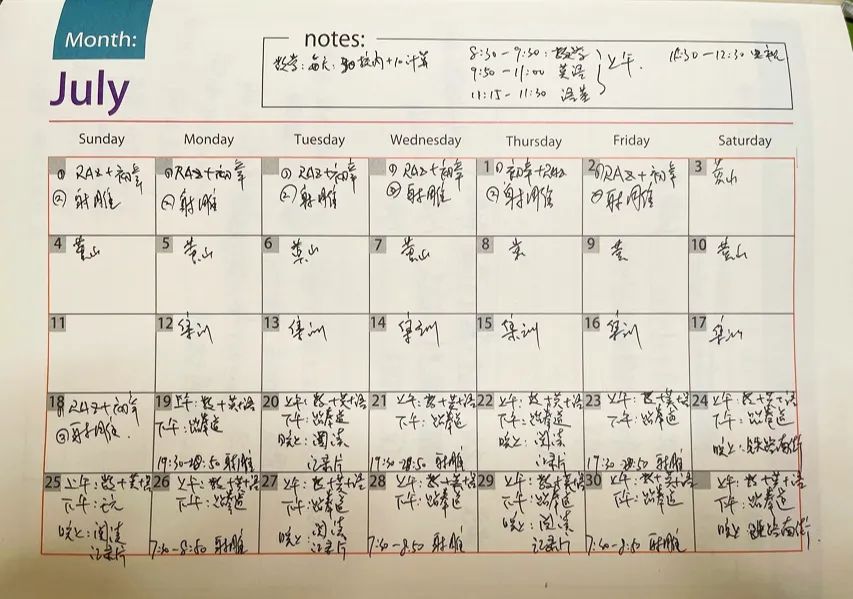 Month:
July
notes:
数学：每天：校内+10计算
8:30-9:30：数学
9:50-11:00 英语
11:15-11:30 语基
上午.
Sunday Monday Tuesday Wednesday Thursday Friday Saturday
① RAZ+初章
② 射雕
① RAZ+初章
② 射雕
① RAZ+初章
② 射雕
① RAZ+初章
② 射雕
1 ① 初章+RAZ
② 射雕
2 ① RAZ+初章
② 射雕
3 黄山
4 黄山
5 黄山
6 黄山
7 黄山
8 黄
9 黄
10 黄山
11
12 集训
13 集训
14 集训
15 集训
16 集训
17 集训
18 ① RAZ+初章
② 射雕.
19 上午：数+英+语
下午：跆拳道
19:30-20:50 射雕
20 上午：数+英+语
下午：跆拳道
晚上：阅读
记录片
21 上午：数+英+语
下午：跆拳道
19:30-20:50 射雕
22 上午：数+英+语
下午：跆拳道
晚上：阅读
记录片
23 上午：数+英+语
下午：跆拳道
19:30-20:50 射雕
24 上午：数+英+语
下午：跆拳道
晚上：
25 上午：数+英+语
下午：无
晚上：阅读
记录片
26 上午：数+英+语
下午：跆拳道
7:30-8:50 射雕
27 上午：数+英+语
下午：跆拳道
晚上：阅读
记录片
28 上午：数+英+语
下午：跆拳道
7:30-8:50 射雕
29 上午：数+英+语
下午：跆拳道
晚上：阅读
记录片
30 上午：数+英+语
下午：跆拳道
7:30-8:50 射雕
上午：数+英+语
下午：跆拳道
晚上：